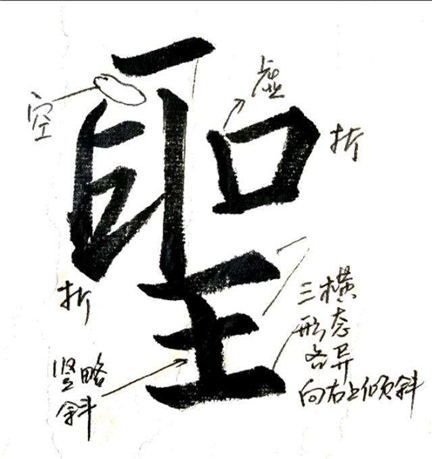 聖
空
虚
折
折
竖略
斜
三横
形态
各异
向右上倾斜